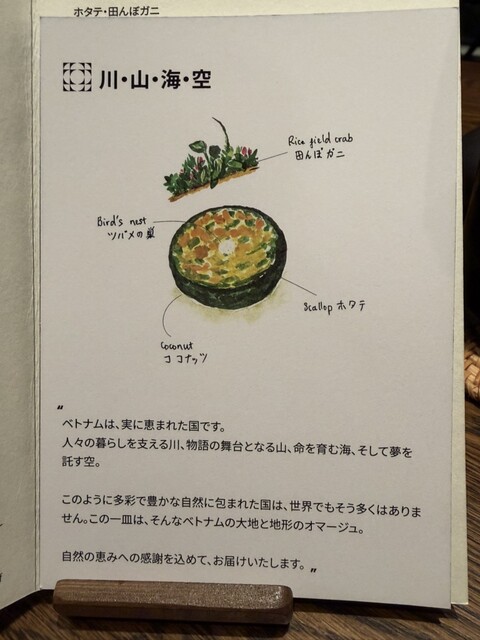 ホタテ・田んぼガニ
川・山・海・空
Rice field crab
田んぼガニ
Bird's nest
ツバメの巣
Scallop ホタテ
Coconut
ココナッツ
"
ベトナムは、実に恵まれた国です。
人々の暮らしを支える川、物語の舞台となる山、命を育む海、そして夢を
託す空。
このように多彩で豊かな自然に包まれた国は、世界でもそう多くはありま
せん。この一皿は、そんなベトナムの大地と地形のオマージュ。
自然の恵みへの感謝を込めて、お届けいたします。 "